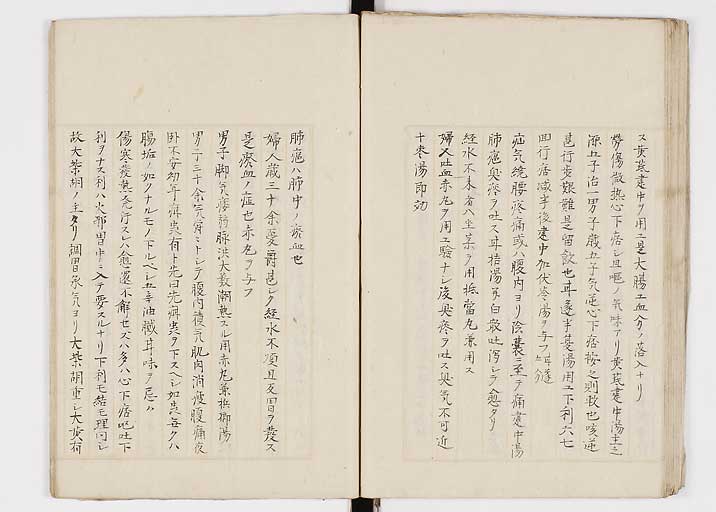 ス黄芪建中ヲ用ユ是大腸エ血分ノ落入ナリ
労傷微热心下痞シ且嘔ノ気味アリ黄芪建中湯主之
源五子治一男子歳五子気逆心下痞按之則軟也咳逆
甚行歩艱難是留飲也甘遂半夏湯用ユ下利六七
四行痞減半後建中加伏苓湯ヲ与フ
疝気繞臍疼痛或ハ腹内ヨリ陰囊ニ至テ痛建中湯
肺癰臭痰ヲ吐ス甘桔湯或白散吐瀉シテ愈タリ
経水不来者八坐薬ヲ用抵當丸兼用ス
婦又吐血赤丸ヲ用エ驗ナシ後臭痰ヲ吐ス臭気不可近
十枣湯即効
肺癰ハ肺中ノ瘀血也
婦人歳三十余憂欝甚シク経水不順且反胃ヲ発ス
是瘀血ノ症也赤丸ヲ与フ
男子脚気痿軃脉洪大数潮熱スル用赤丸兼梹榔湯
男子三十余気宵ミトシテ腹内積気肌肉消痩腹痛夜
卧不安幼年癖蚘有ト先曰先癖蚘ヲ下スヘシ如蚘每クハ
腸垢ノ如クナルモノ下ルベシ五辛油膩甘味ヲ忌ム
傷寒発熱発汗スレハ愈還不解セズハ多ハ心下痞嘔吐下
利ヲナス利ハ火邪胃中ニ入テ要スルナリ下利モ結モ理同シ
故大柴胡ノ主タリ調胃承気ヨリ大柴胡重シ大黄有